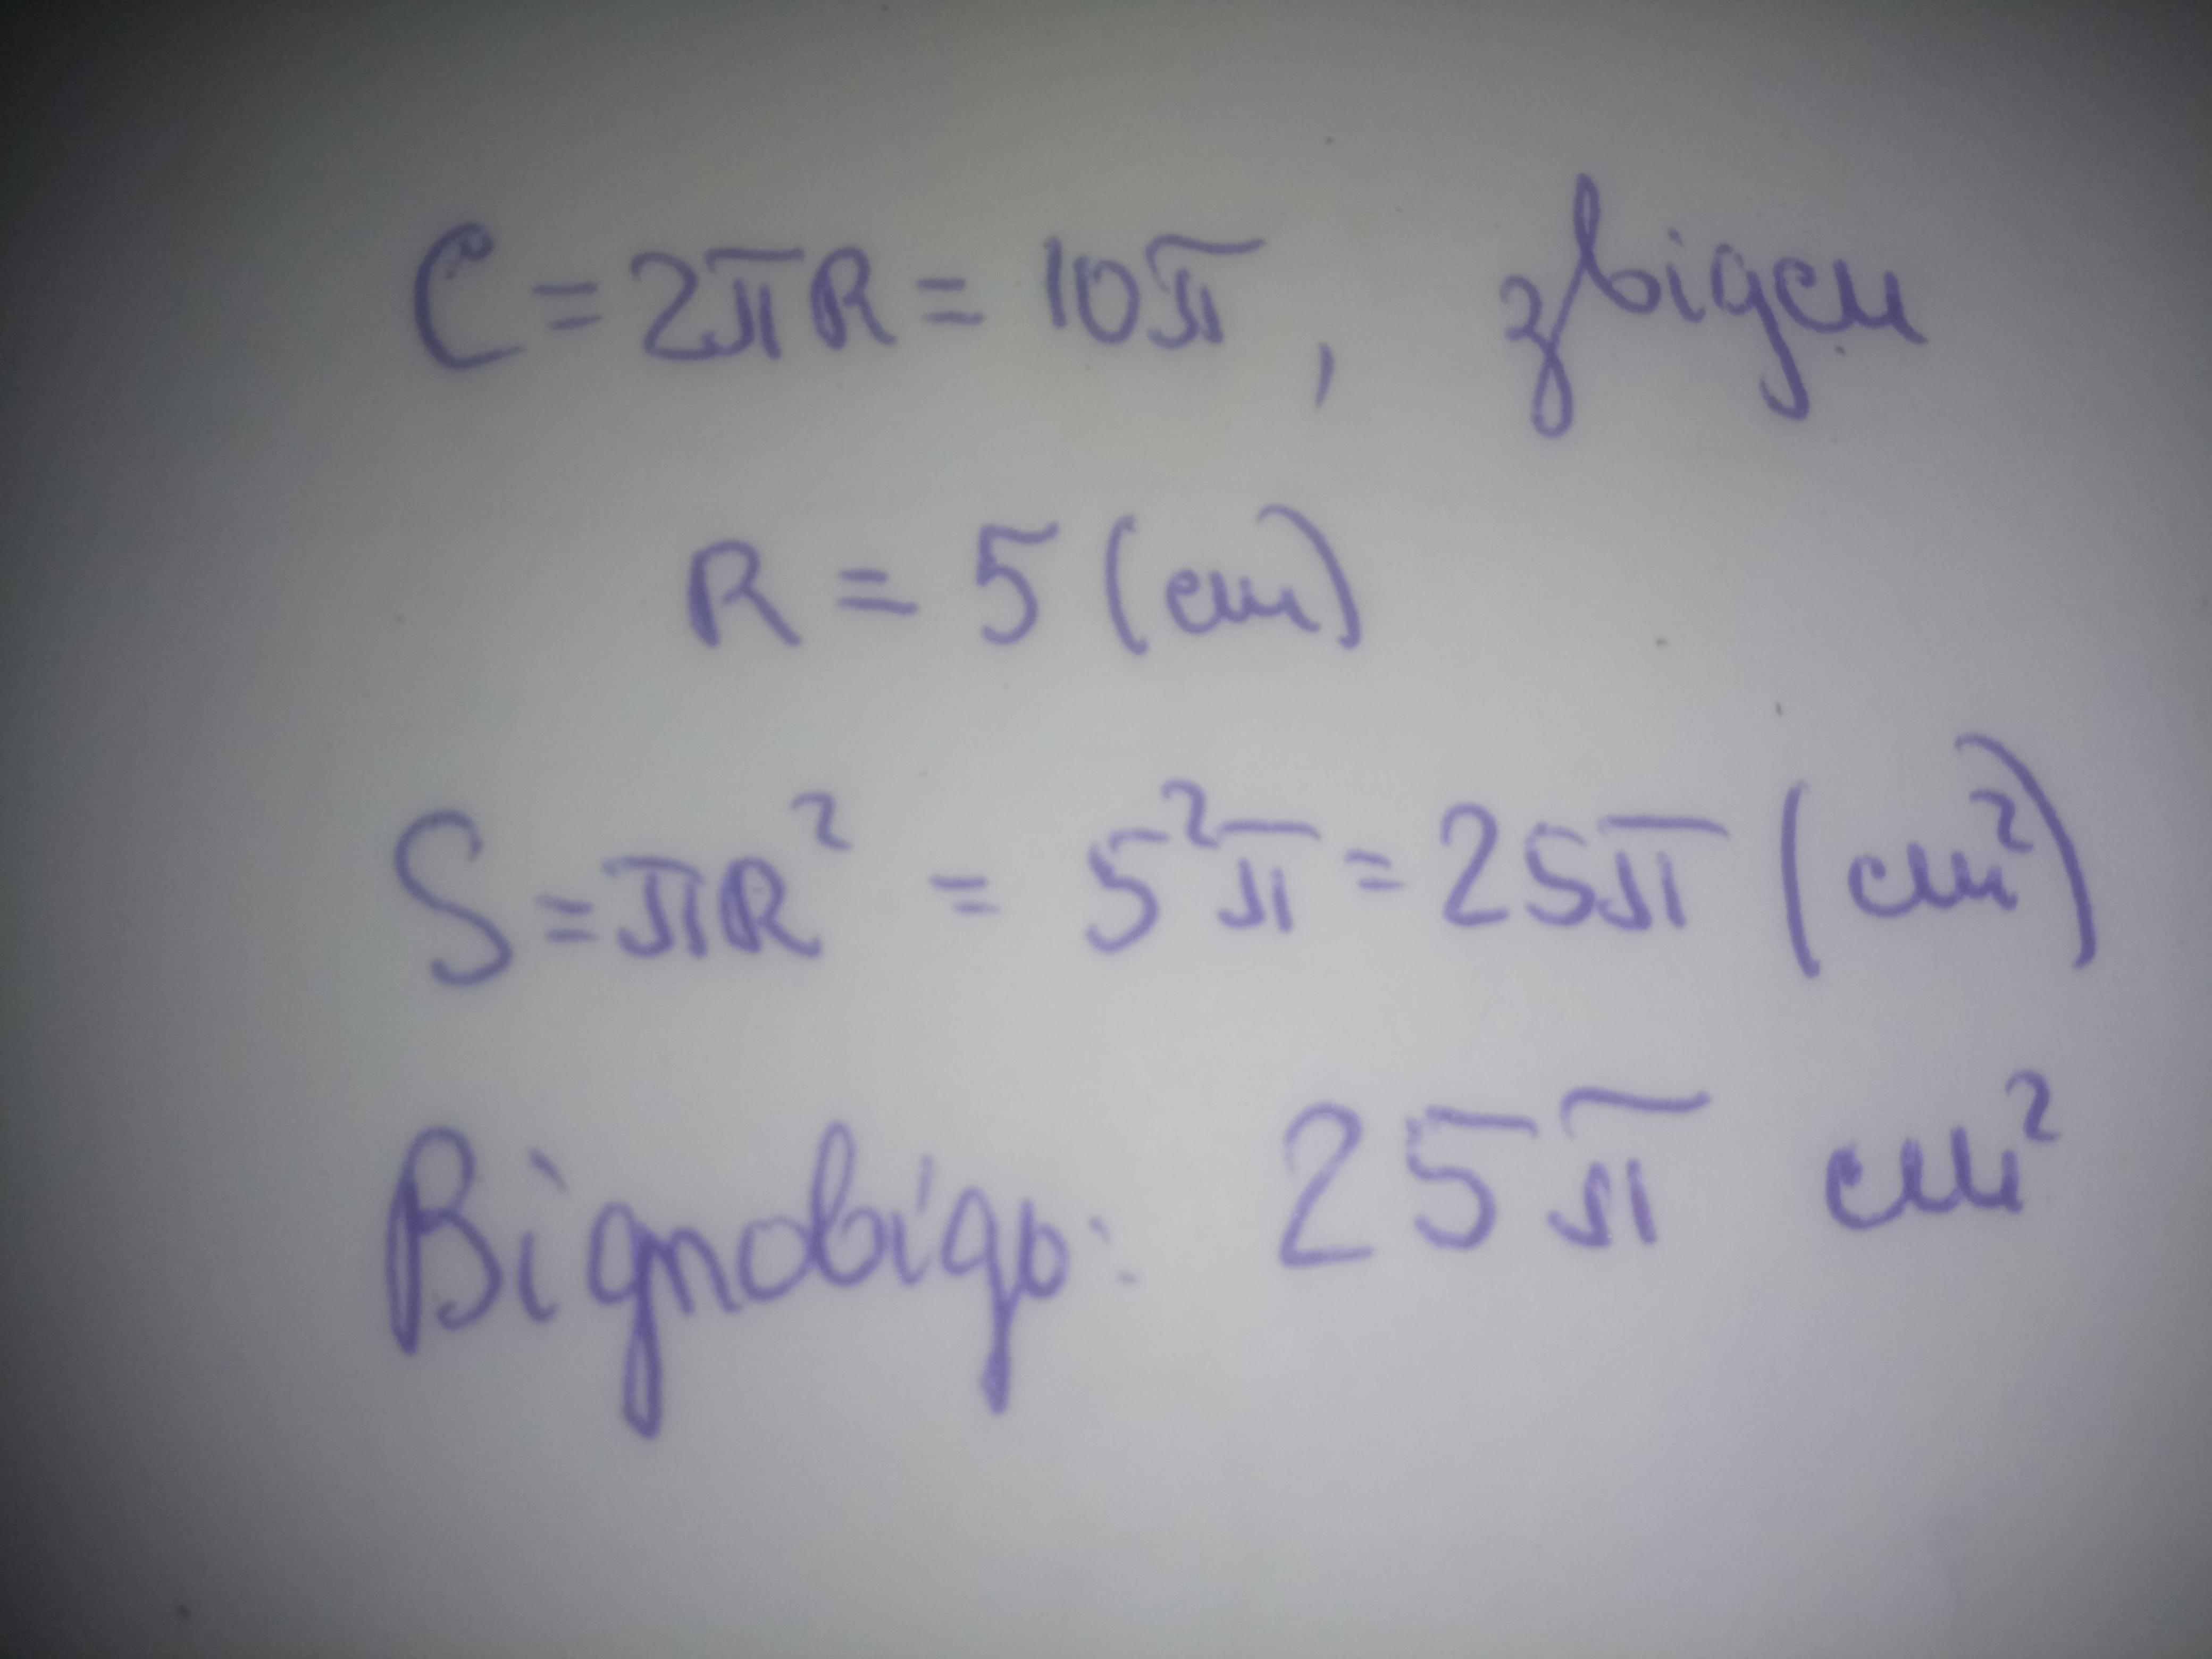 C = 2πR = 10π, звідси
R = 5 (см)
S = πR² = 5²π = 25π (см²)
Відповідь: 25π см²